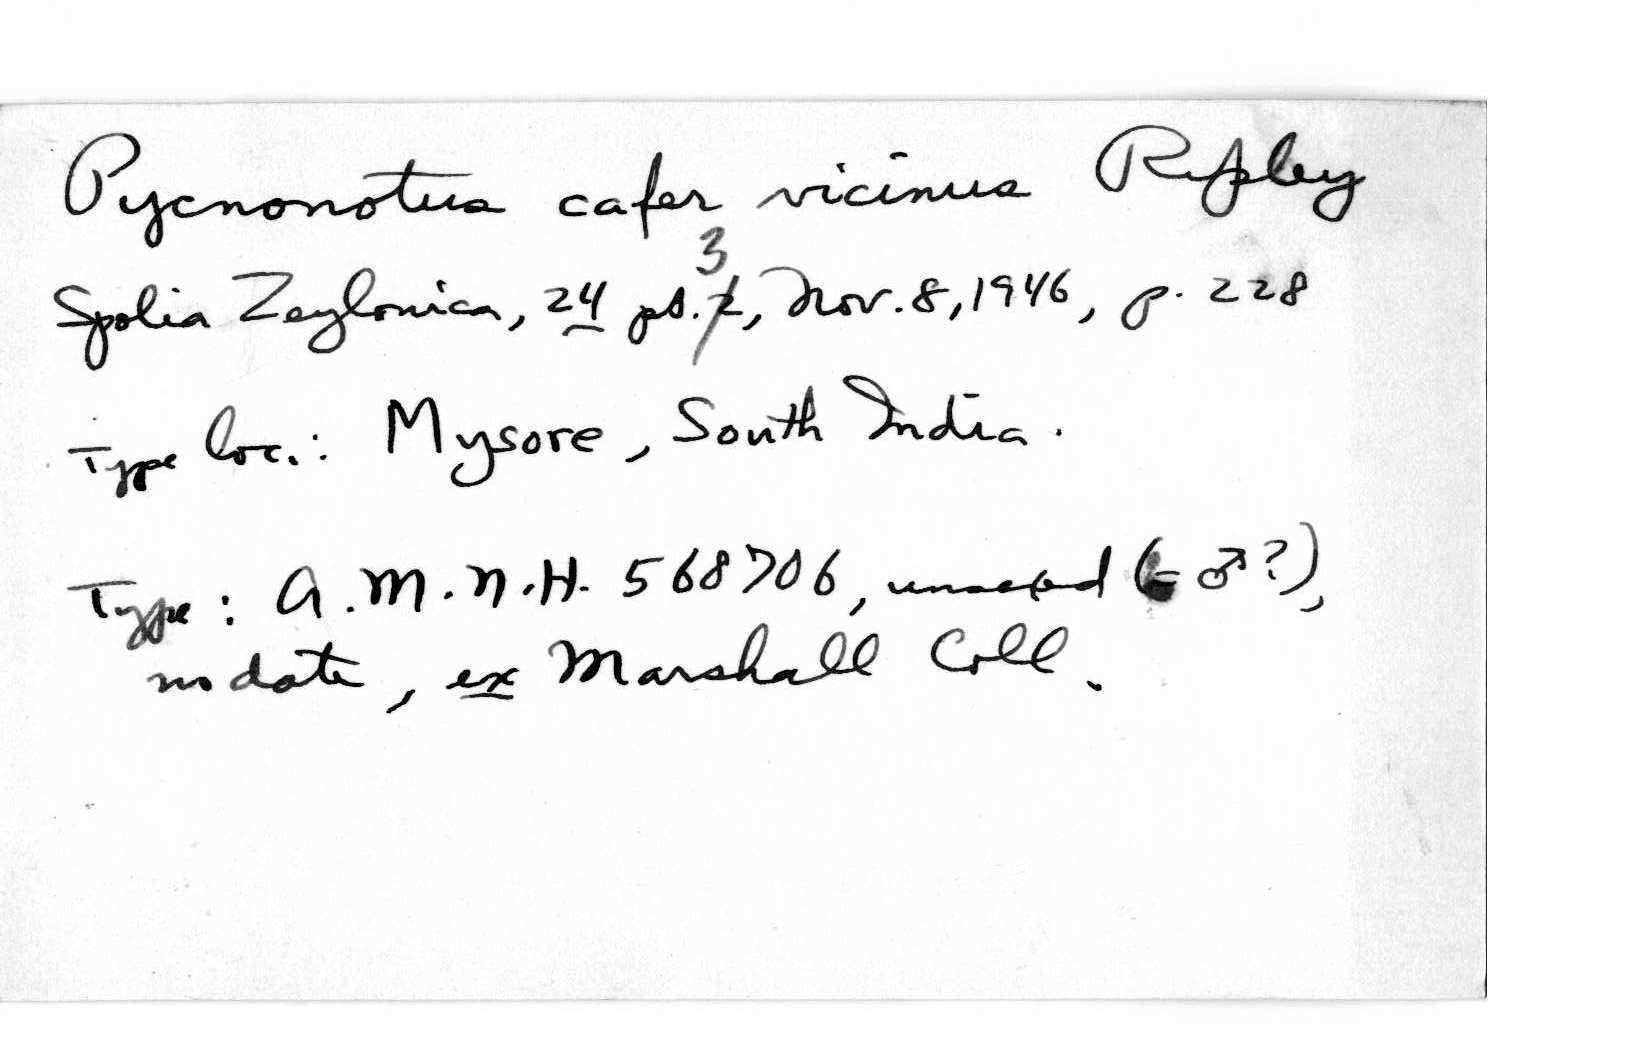 Pycnonotus cafer vicinus Ripley
Spolia Zeylonica, 24 pt. 3, Nov. 8, 1946, p. 228
Type loc.: Mysore, South India.
Type: A.M.N.H. 568706, unsexed (= ♂?),
no date, ex Marshall Coll.